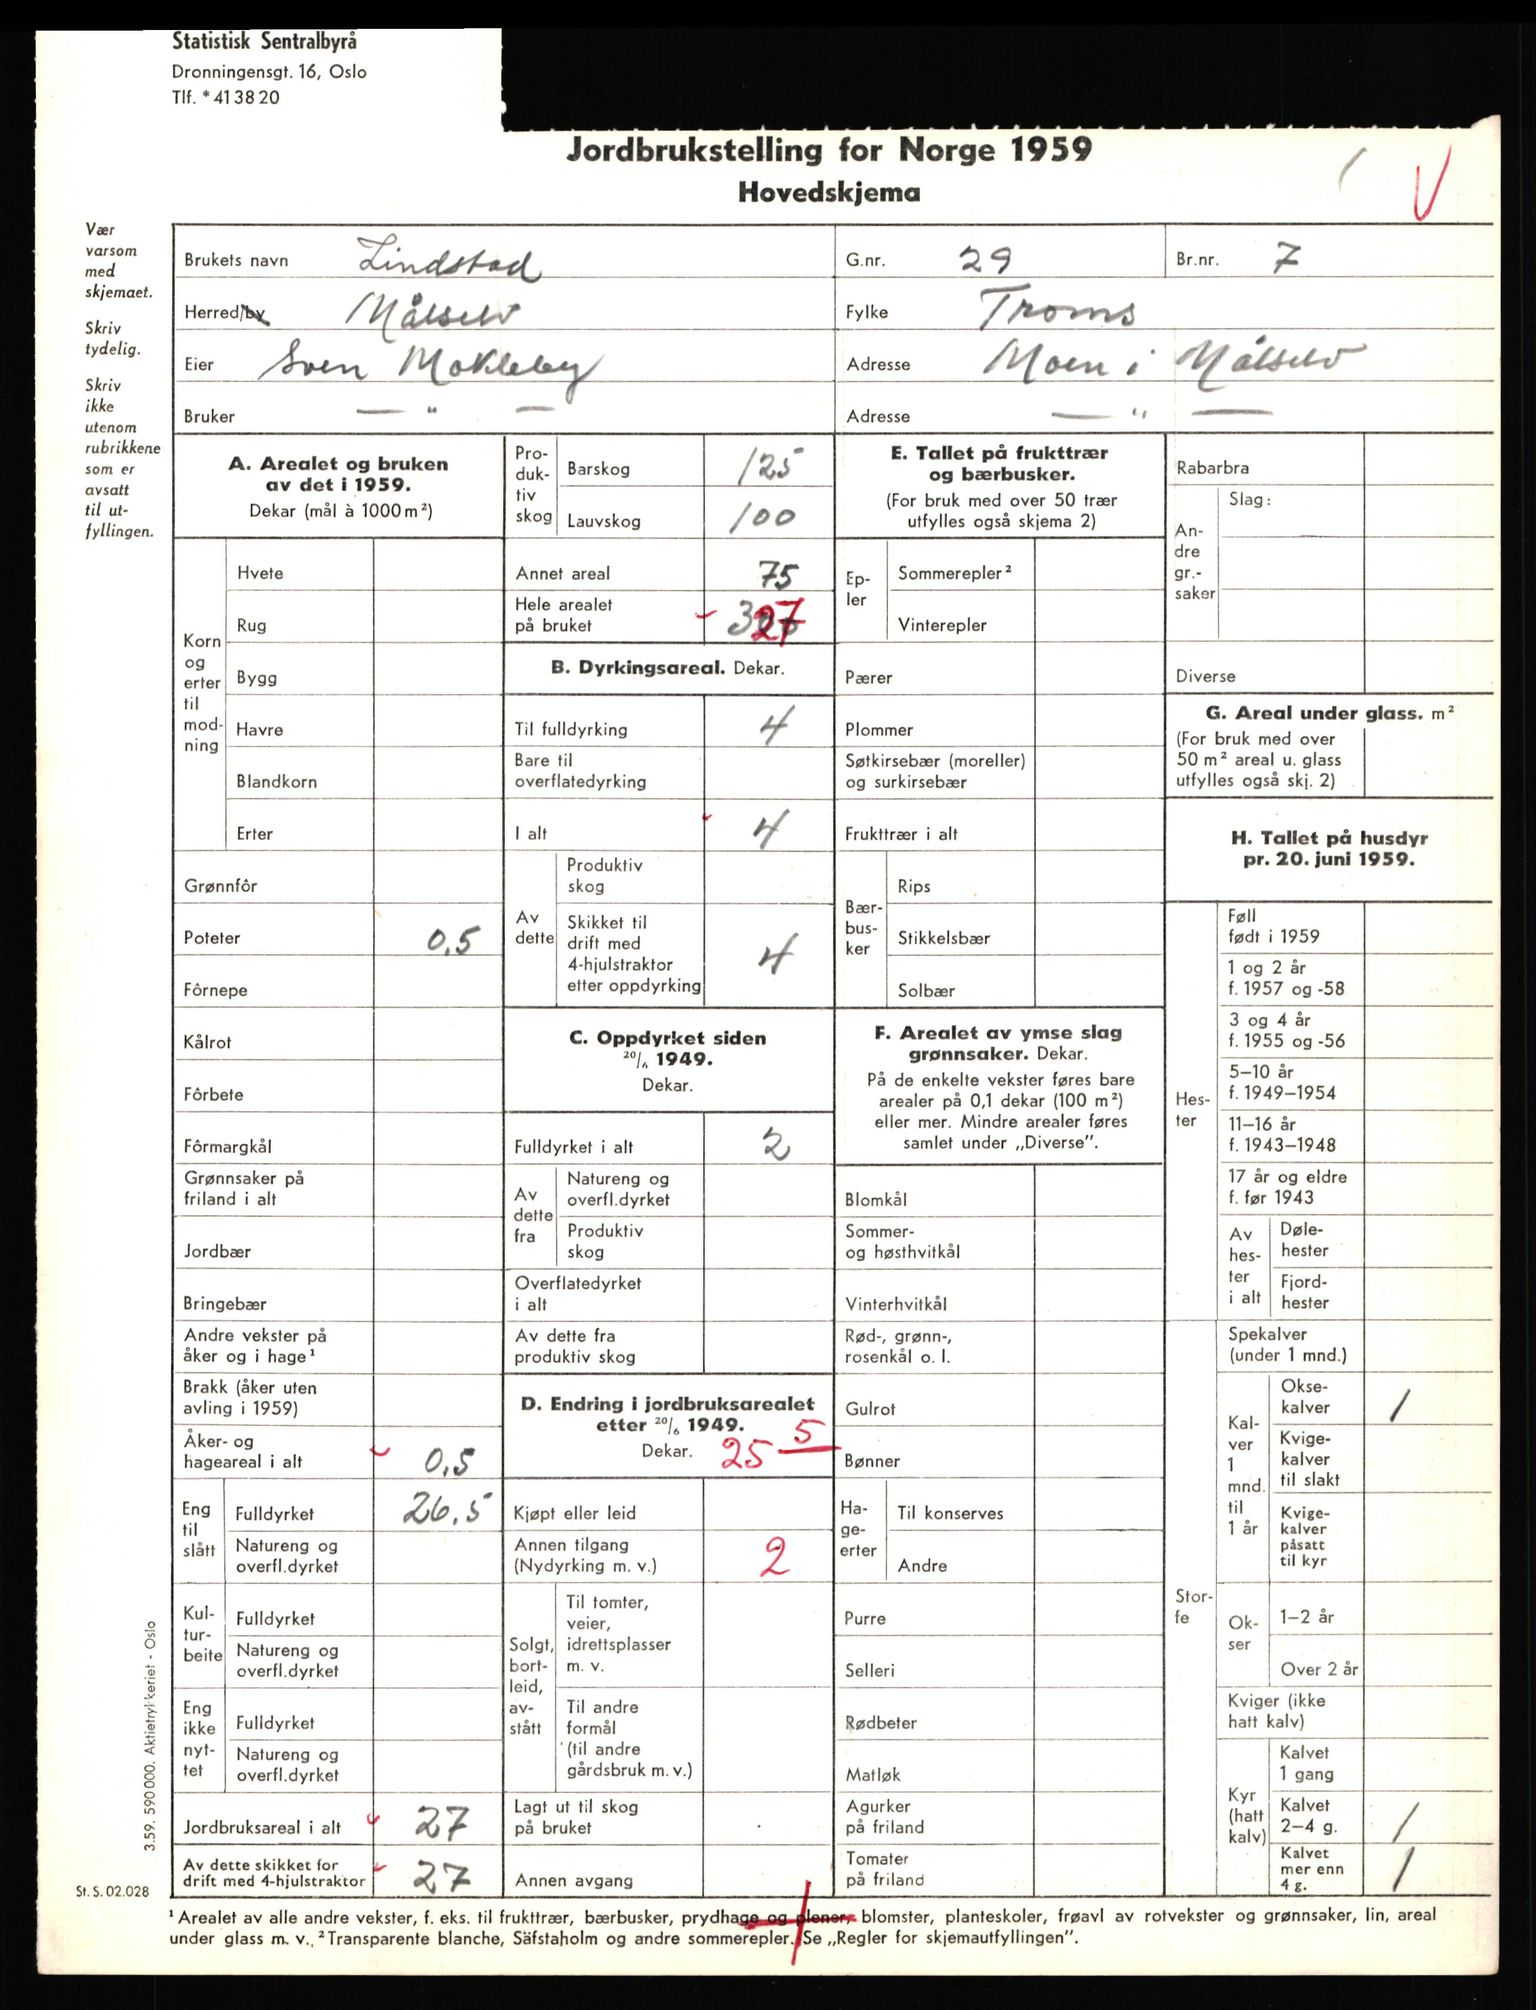 Statistisk Sentralbyrå
Dronningensgt. 16, Oslo
Tlf. * 41 38 20
Jordbrukstelling for Norge 1959
Hovedskjema
V
Vær
varsom
med
skjemaet.
Skriv
tydelig.
Skriv
ikke
utenom
rubrikkene
som er
avsatt
til ut-
fyllingen.
Brukets navn Lindstad G.nr. 29 Br.nr. 7
Herred/by Målselv Fylke Troms
Eier Sven Mokleby Adresse Moen i Målselv
Bruker — " — Adresse — " —
A. Arealet og bruken
av det i 1959.
Dekar (mål à 1000 m²)
Korn
og
erter
til
mod-
ning
Hvete
Rug
Bygg
Havre
Blandkorn
Erter
Grønnfôr
Poteter 0,5
Fôrnepe
Kålrot
Fôrbete
Fôrmargkål
Grønnsaker på
friland i alt
Jordbær
Bringebær
Andre vekster på
åker og i hage¹
Brakk (åker uten
avling i 1959)
Åker- og
hageareal i alt 0,5
Eng
til
slått
Fulldyrket 26,5
Natureng og
overfl.dyrket
Kul-
tur-
beite
Fulldyrket
Natureng og
overfl.dyrket
Eng
ikke
nyt-
tet
Fulldyrket
Natureng og
overfl.dyrket
Jordbruksareal i alt 27
Av dette skikket for
drift med 4-hjulstraktor 27
Pro-
duk-
tiv
skog
Barskog 125
Lauvskog 100
Annet areal 75
Hele arealet
på bruket 327
B. Dyrkingsareal. Dekar.
Til fulldyrking 4
Bare til
overflatedyrking
I alt 4
Av
dette
Produktiv
skog
Skikket til
drift med
4-hjulstraktor
etter oppdyrking 4
C. Oppdyrket siden
20/6 1949.
Dekar.
Fulldyrket i alt 2
Av
dette
fra
Natureng og
overfl.dyrket
Produktiv
skog
Overflatedyrket
i alt
Av dette fra
produktiv skog
D. Endring i jordbruksarealet
etter 20/6 1949.
Dekar. 25 5
Kjøpt eller leid
Annen tilgang
(Nydyrking m. v.) 2
Solgt,
bort-
leid,
av-
stått
Til tomter,
veier,
idrettsplasser
m. v.
Til andre
formål
(til andre
gårdsbruk m. v.)
Lagt ut til skog
på bruket
Annen avgang
E. Tallet på frukttrær
og bærbusker.
(For bruk med over 50 trær
utfylles også skjema 2)
Ep-
ler
Sommerepler²
Vinterepler
Pærer
Plommer
Søtkirsebær (moreller)
og surkirsebær
Frukttrær i alt
Bær-
bus-
ker
Rips
Stikkelsbær
Solbær
F. Arealet av ymse slag
grønnsaker. Dekar.
På de enkelte vekster føres bare
arealer på 0,1 dekar (100 m²)
eller mer. Mindre arealer føres
samlet under „Diverse”.
Blomkål
Sommer-
og høsthvitkål
Vinterhvitkål
Rød-, grønn-,
rosenkål o. l.
Gulrot
Bønner
Ha-
ge-
erter
Til konserves
Andre
Purre
Selleri
Rødbeter
Matløk
Agurker
på friland
Tomater
på friland
Rabarbra
An-
dre
gr.-
saker
Slag:
Diverse
G. Areal under glass. m²
(For bruk med over
50 m² areal u. glass
utfylles også skj. 2)
H. Tallet på husdyr
pr. 20. juni 1959.
Hes-
ter
Føll
født i 1959
1 og 2 år
f. 1957 og -58
3 og 4 år
f. 1955 og -56
5–10 år
f. 1949–1954
11–16 år
f. 1943–1948
17 år og eldre
f. før 1943
Av
hes-
ter
i alt
Døle-
hester
Fjord-
hester
Stor-
fe
Spekalver
(under 1 mnd.)
Kal-
ver
1
mnd.
til
1 år
Okse-
kalver 1
Kvige-
kalver
til slakt
Kvige-
kalver
påsatt
til kyr
Ok-
ser
1–2 år
Over 2 år
Kviger (ikke
hatt kalv)
Kyr
(hatt
kalv)
Kalvet
1 gang
Kalvet
2–4 g. 1
Kalvet
mer enn
4 g. 1
3.59. 590 000. Aktietrykkeriet - Oslo
St. S. 02.028
¹ Arealet av alle andre vekster, f. eks. til frukttrær, bærbusker, prydhage og plener, blomster, planteskoler, frøavl av rotvekster og grønnsaker, lin, areal
under glass m. v. ² Transparente blanche, Säfstaholm og andre sommerepler. Se „Regler for skjemautfyllingen”.